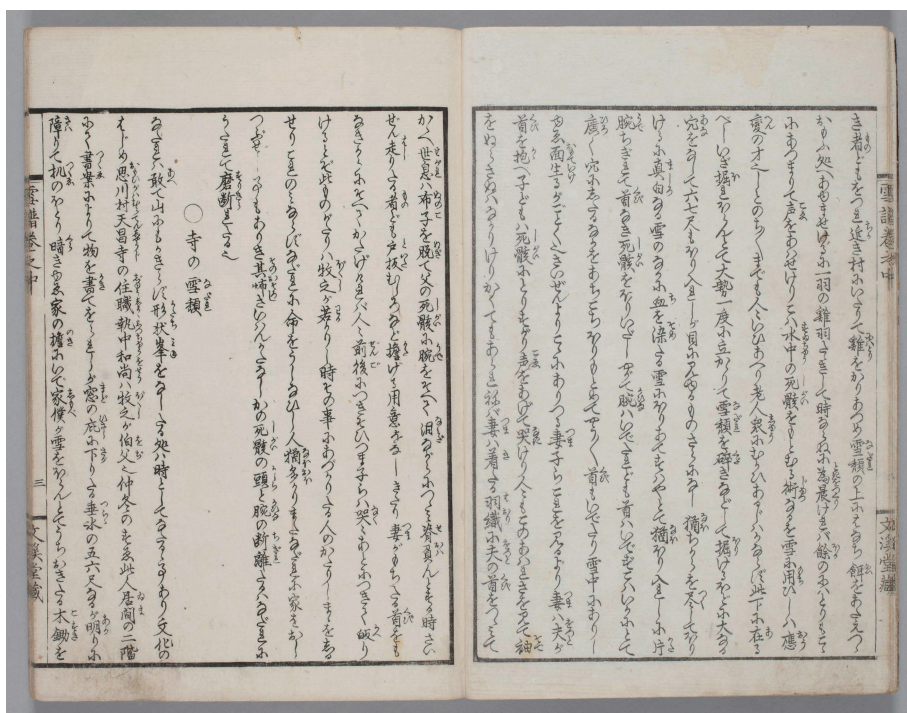 き者どもをつれ近き村にいたりて雞をかりあつめ雪頽の上にはなち餌をあたへつゝ
おもふ処へあゆませけるに一羽の雞羽たゝきして時ならぬに為晨ければ餘のにはとりもこゝ
にあつまりて声をあはせけりこは水中の死骸をもとむる術なるを雪に用ひしは應
變の才也しとのち〳〵までも人々いひあへり老人衆にむかひあるじはかならず此下に在る
べしいざ掘れほらんとて大勢一度に立かゝりて雪頽を砕きなどして掘けるほどに大なる
穴をなして六七尺もほり入れしが目に見ゆるものさらになし猶ちからを尽してほり
けるに真白なる雪のなかに血を染たる雪にほりあてすはやとて猶ほり入れしに片
腕ちぎれて首なき死骸をほりいだしやがて腕はいでたれども首はいでずこはいかにとて
廣く穴にしたるなかをあちこちほりもとめてやう〳〵首もいでたり雪中にありし
ゆゑ面生るがごとく也さいぜんよりこゝにありつる妻子らこれを見るより妻は夫が
首を抱へ子どもは死骸にとりすがり声をあげて哭けり人々もこのあはれさを見て袖
をぬらさぬはなかりけりかくてもあられねば妻は着たる羽織に夫の首をつゝみて
かゝへ世息は布子を脱て父の死骸に腕をそへて泪ながらにつゝみ脊負んとする時さい
ぜん走りたる者ども戸板むしろなど擔げる用意をなしきたり妻がもちたる首をも
なきからにそへてかたげれば人々前後につきそひつま子らは哭く〳〵あとにつきて皈り
けるとぞ此ものがたりは牧之が若かりし時その事にあづかりたる人のかたりしまゝをしる
せりこれのみならずなだれに命をうしなひし人猶多かりまたなだれに家をおし
つぶせし事もありき其怖さいはんかたなしかの死骸の頭と腕の断離たるはなだれに
うたれて磨断れたる也
○寺の雪頽
なだれは敢て山にもかぎらず形状峯をなしたる処は時としてなだるゝ事あり文化の
はじめ思川村天昌寺の住職執中和尚は牧之が伯父也仲冬のすゑ此人居間の二階
にて書案によりて物を書てをられしが窓の庇に下りたる垂氷の五六尺なるが明りに
障りて机のほとり暗きゆゑ家の擔にいで家僕が雪をほらんとてうちおきたる木鋤を
雪譜巻之中
三
文溪堂藏